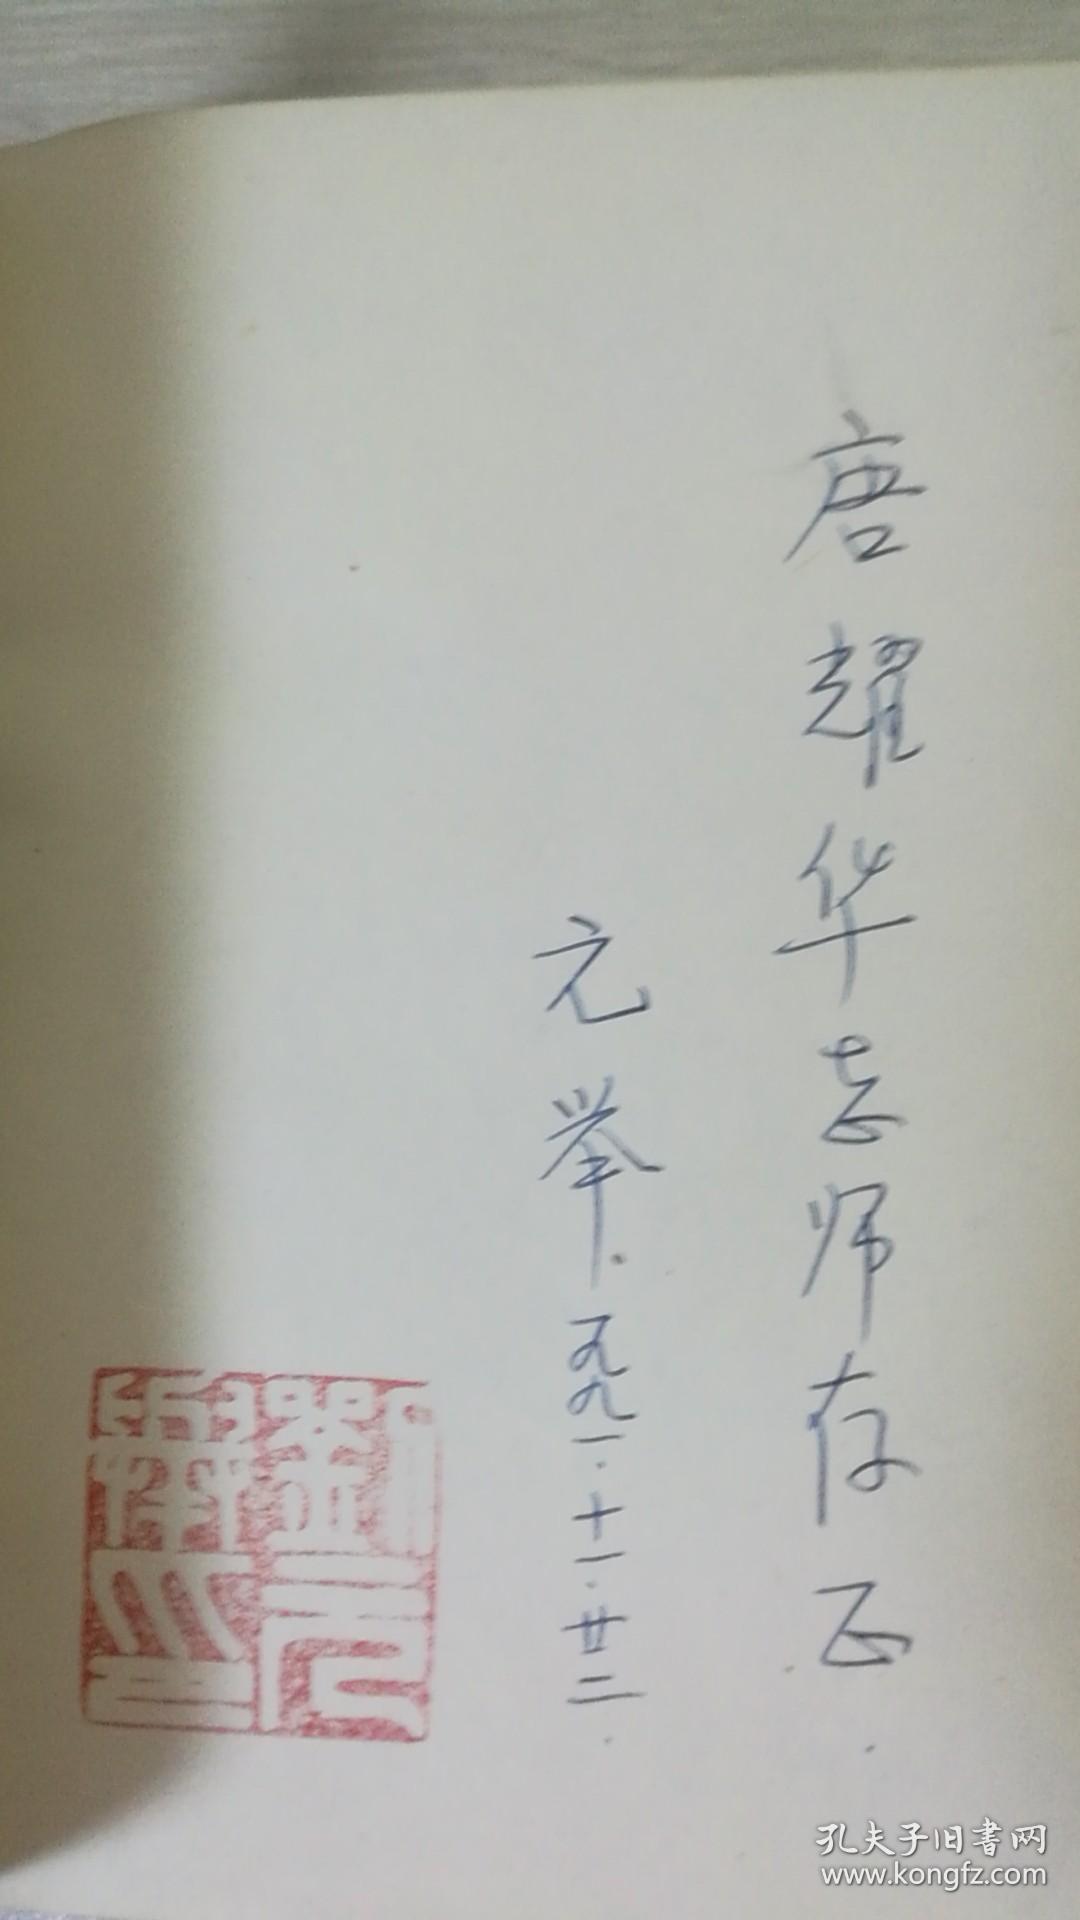 唐耀华老师存正.
元举.一九九一.十一.廿二.
劉元舉印
孔夫子旧書网
www.kongfz.com